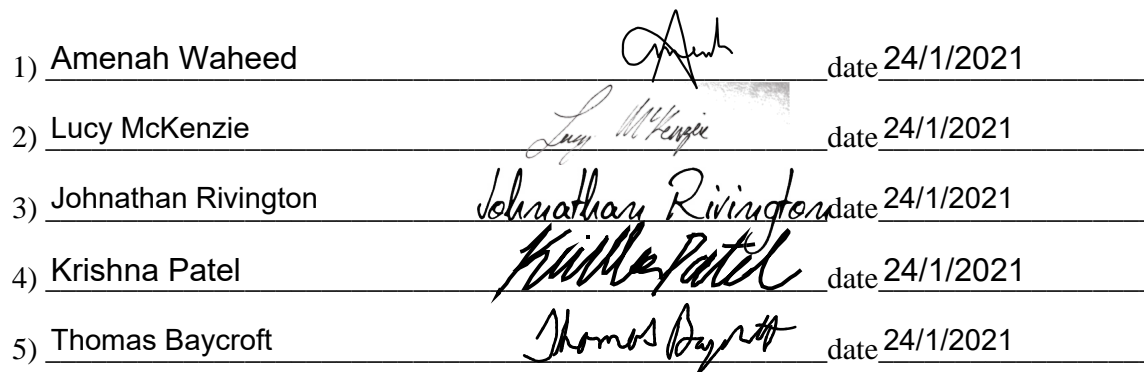 1) Amenah Waheed date 24/1/2021
2) Lucy McKenzie Lucy McKenzie date 24/1/2021
3) Johnathan Rivington Johnathan Rivington date 24/1/2021
4) Krishna Patel Patel date 24/1/2021
5) Thomas Baycroft Thomas Baycroft date 24/1/2021